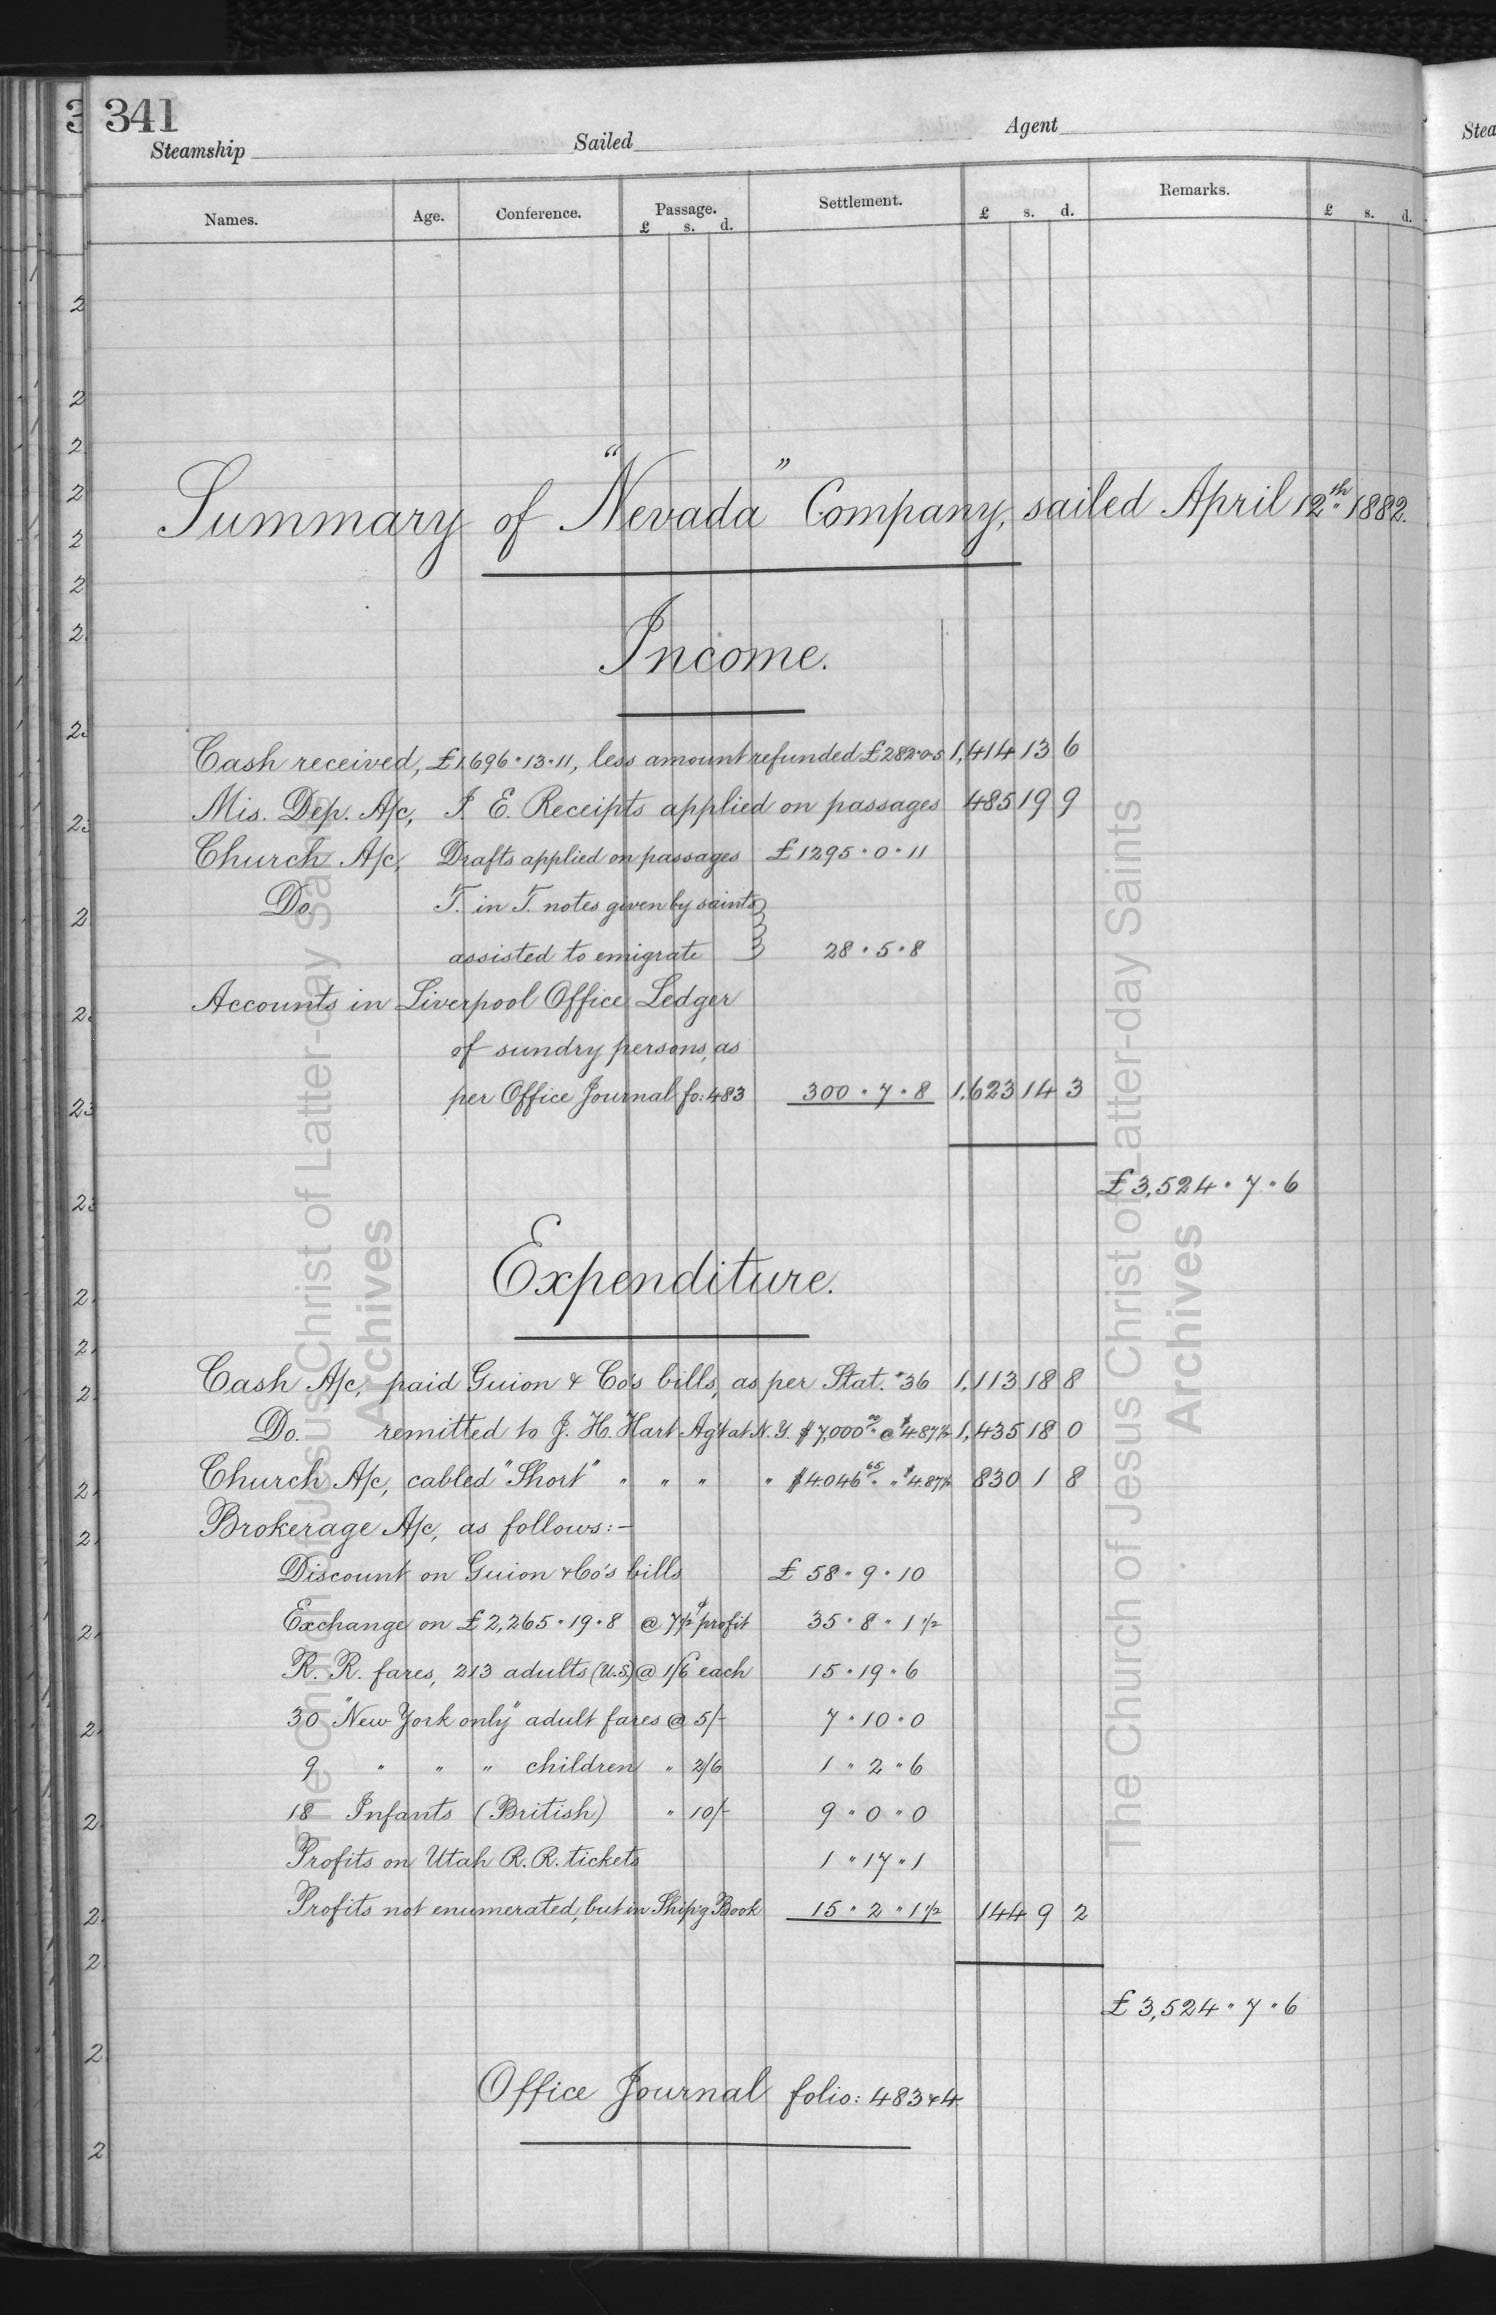 341
Steamship Sailed Agent
Names. Age. Conference. Passage. £ s. d. Settlement. £ s. d. Remarks. £ s. d.
Summary of "Nevada" Company, sailed April 12th 1882.
Income.
Cash received, £1,696·13·11, less amount refunded £282·0·5 1,414 13 6
Mis. Dep. A/c, I. E. Receipts applied on passages 485 19 9
Church A/c, Drafts applied on passages £1295·0·11
Do. T. in T. notes given by saints
assisted to emigrate 28·5·8
Accounts in Liverpool Office Ledger
of sundry persons, as
per Office Journal fo: 483 300·7·8 1,623 14 3
£3,524·7·6
Expenditure.
Cash A/c, paid Guion & Co's bills, as per Stat. "36 1,113 18 8
Do. remitted to J. H. Hart Ag't at N. Y. $7,000 00 @ $4.87½ 1,435 18 0
Church A/c, cabled "Short" " " " " $4.046 65 " $4.87½ 830 1 8
Brokerage A/c, as follows:-
Discount on Guion & Co's bills £58·9·10
Exchange on £2,265·19·8 @ 7½ profit 35·8·1½
R. R. fares, 213 adults (U.S.) @ 1/6 each 15·19·6
30 "New York only" adult fares @ 5/- 7·10·0
9 " " " children " 2/6 1·2·6
18 Infants (British) " 10/- 9·0·0
Profits on Utah R. R. tickets 1·17·1
Profits not enumerated, but in Ship'g Book 15·2·1½ 144 9 2
£3,524·7·6
Office Journal folio: 483 & 4
The Church of Jesus Christ of Latter-day Saints
Archives
The Church of Jesus Christ of Latter-day Saints
Archives